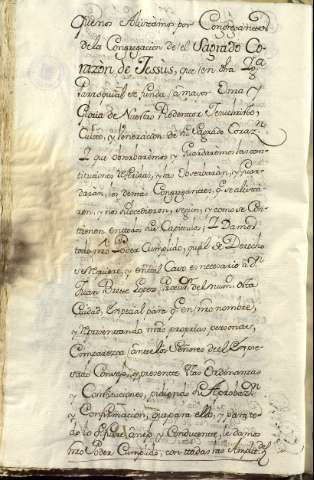 que nos Alistamos por Congregantes
de la Congregacion de el Sagrado Co-
razòn de Jessus, que en dha Iga
Parroquial se funda a mayor Honra y
Gloria de Nuestro Redemtor Jesuchristo,
Culto, y Veneracion de su Sagrado Corazn
Y que observaremos y Guardaremos las con-
stituciones referidas, y las observaran, y guar-
daran, los demas Congregantes, q se alista-
ren, y nos subcedieren, segun, y como se con-
tienen en todos sus Capitulos; Y Damos
todo nro Poder Cumplido, qual de Derecho
se requiere, y en tal Caso es necesario a Dn
Juan Lopez Procor del numo desta
Ciudad para q en nro nombre,
y representando nras proprias personas,
Comparezca ante los Señores de el
Consejo, y presente Ntas Ordinanzas
y Constituciones, pidiendo su Aprobazn
y Confirmacion, que para ello, y para to-
do lo anejo, y Conducente, le damos
nro Poder Cumplido, con todas las